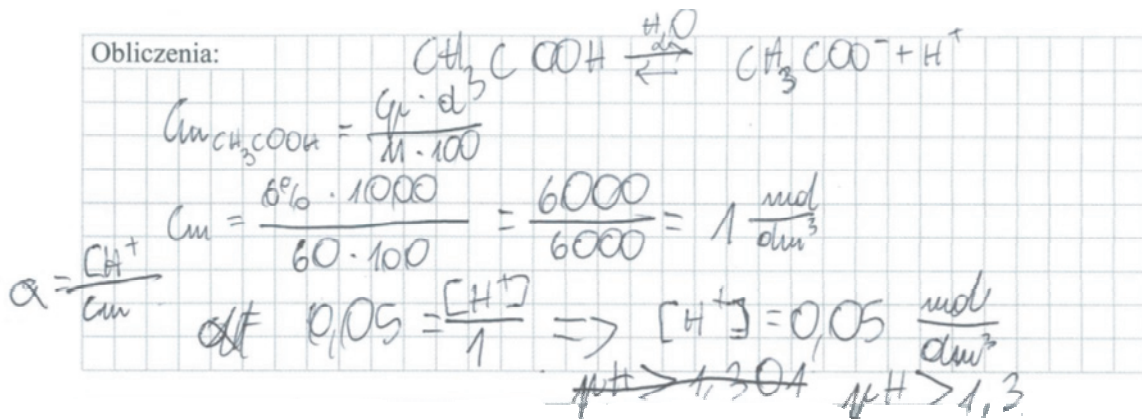 Obliczenia: CH₃COOH ⇄ H₂O CH₃COO⁻ + H⁺
Cm CH₃COOH = Cp · d / M · 100
Cm = 6% · 1000 / 60 · 100 = 6000 / 6000 = 1 mol/dm³
α = CH⁺ / Cm
0,05 = [H⁺] / 1 => [H⁺] = 0,05 mol/dm³
pH > 1,301 pH > 1,3